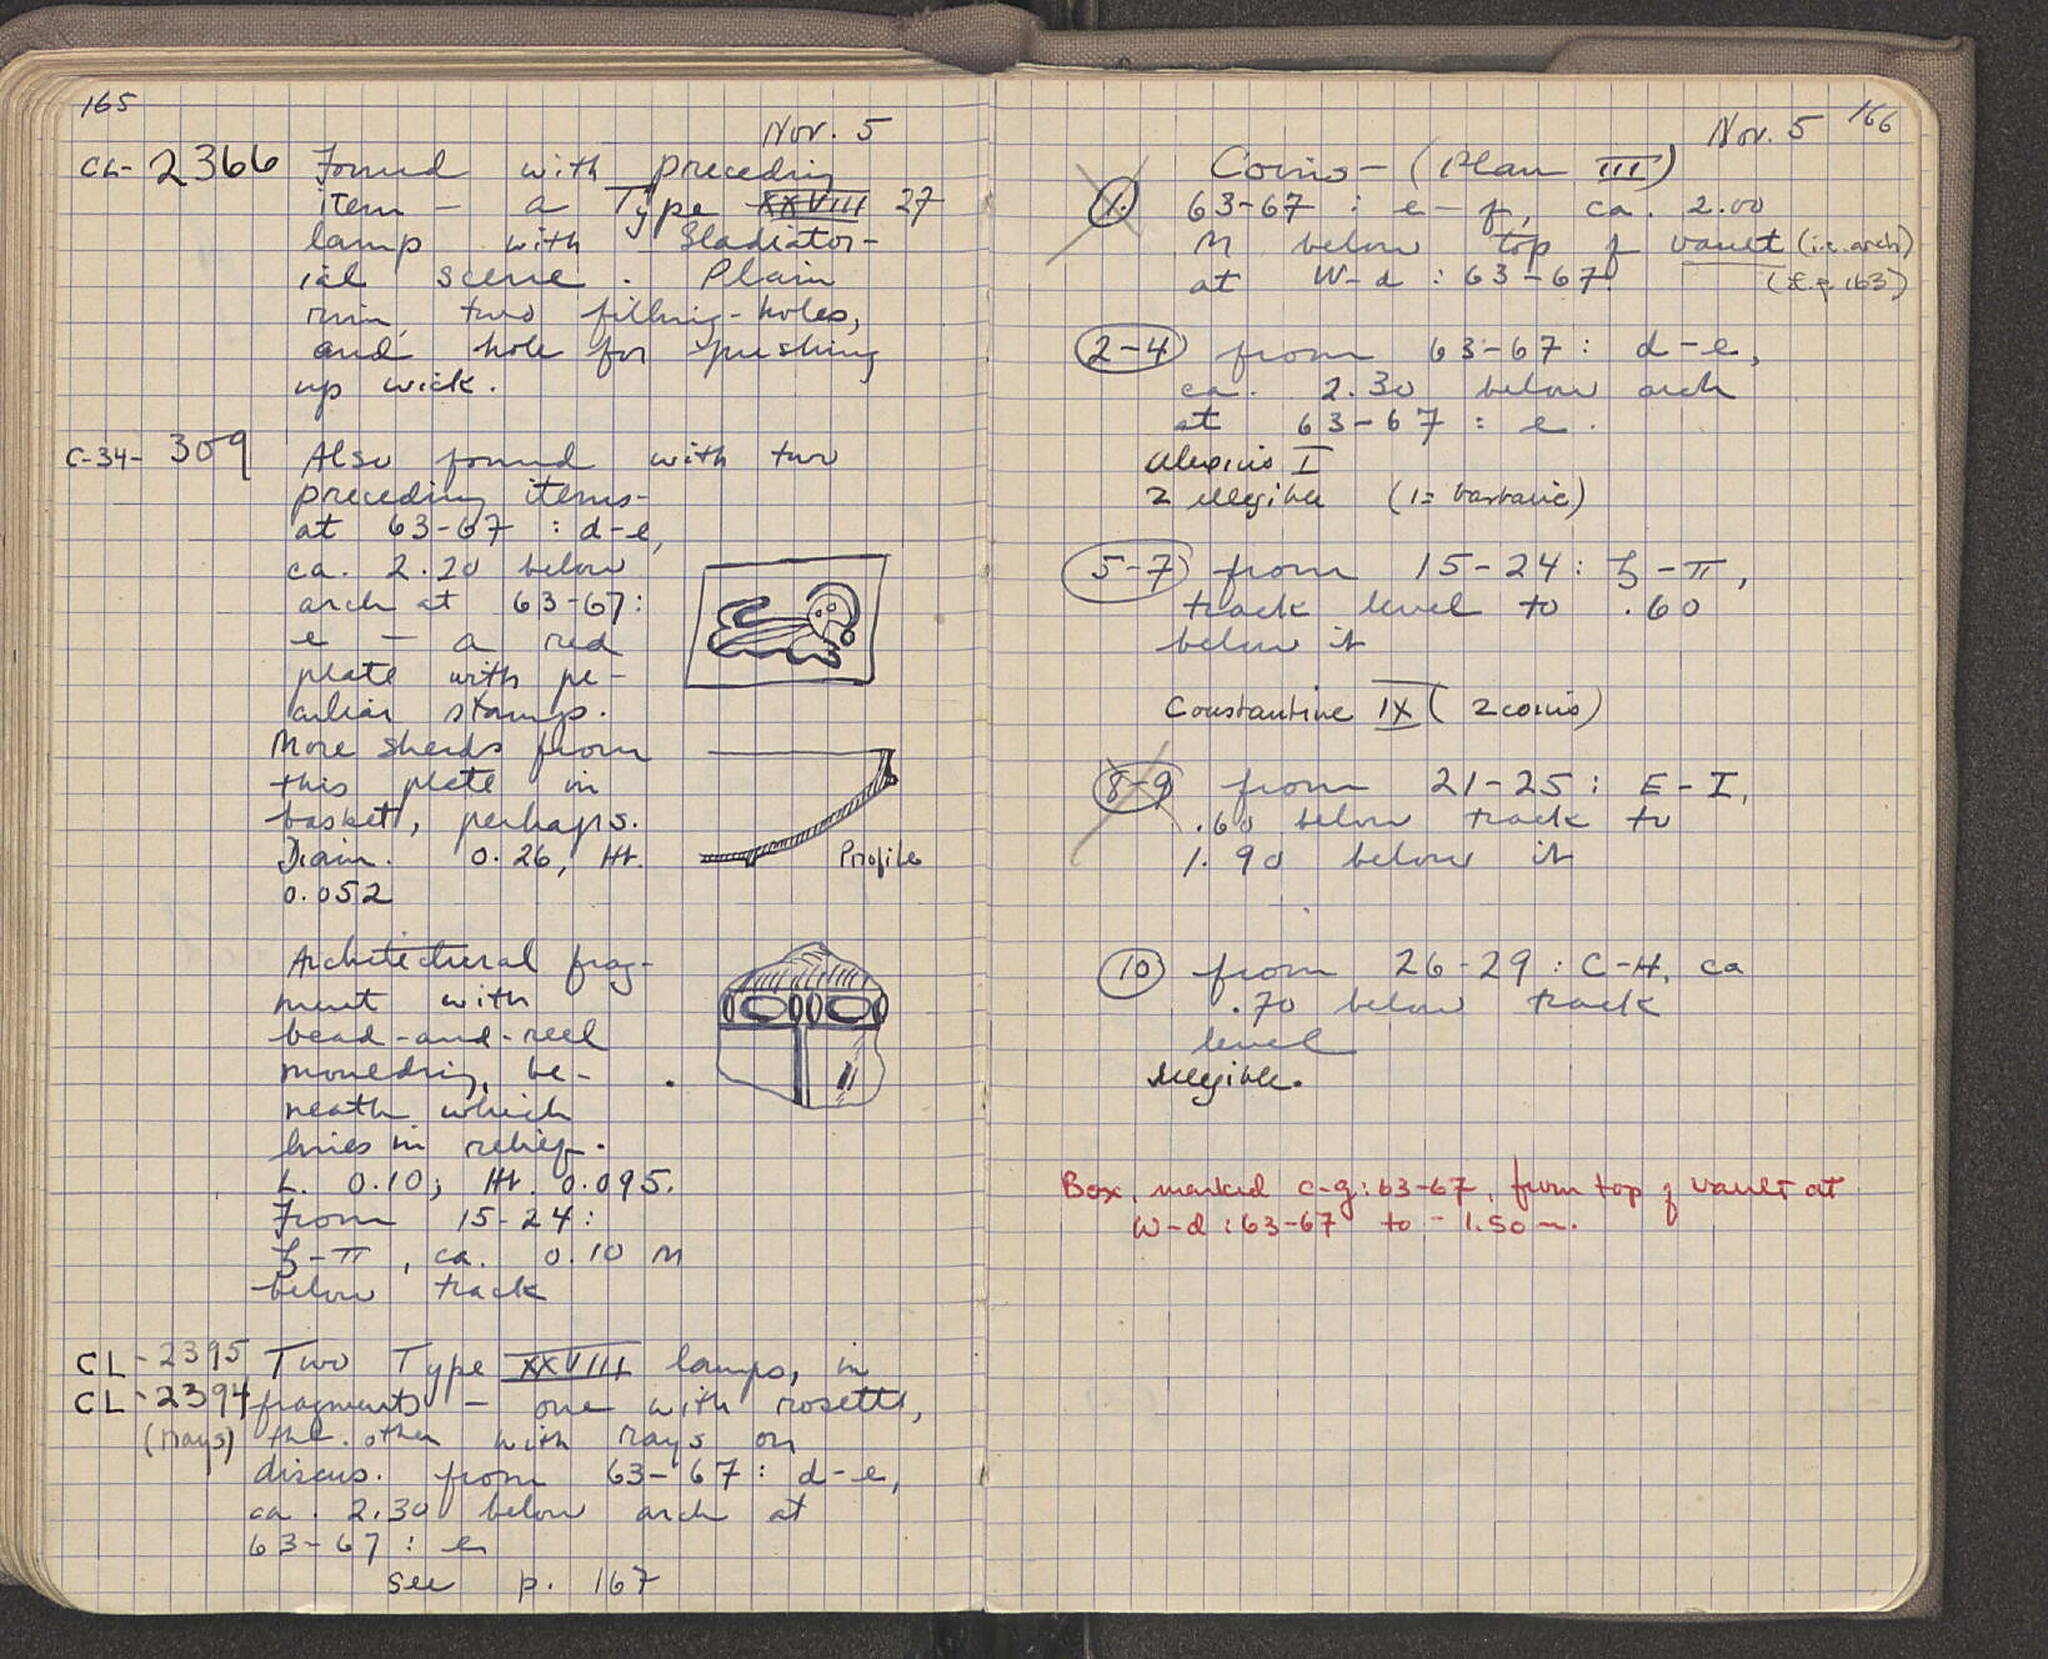 165
Nov. 5
CL- 2366 Found with preceding
item - a Type XXVIII 27
lamp with Gladiator-
ial scene. Plain
rim, two filling-holes,
and hole for pushing
up wick.
C-34- 309 Also found with two
preceding items-
at 63-67 : d-e,
ca. 2.20 below
arch at 63-67:
e - a red
plate with pe-
culiar stamp.
More sherds from
this plate in
basket, perhaps.
Diam. 0.26, Ht.
0.052
Profile
Architectural frag-
ment with
bead-and-reel
moulding, be-
neath which
lines in relief.
L. 0.10; Ht. 0.095.
From 15-24:
ζ-π, ca. 0.10 M
below track
CL-2395 Two Type XXVIII lamps, in
CL-2394 fragments - one with rosette,
(rays) the other with rays on
discus. from 63-67: d-e,
ca. 2.30 below arch at
63-67 : e
see p. 167
Nov. 5 166
Coins- (Plan III)
1. 63-67 : e-f, ca. 2.00
M below top of vault (i.e. arch)
at W-d : 63-67. (cf. p. 163)
2-4 from 63-67: d-e,
ca. 2.30 below arch
at 63-67 : e.
Alexius I
2 illegible (1= barbaric)
5-7 from 15-24: ζ-π,
track level to .60
below it
Constantine IX (2 coins)
8-9 from 21-25: E-I,
.60 below track to
1.90 below it
10 from 26-29 : C-H, ca
.70 below track
level
illegible.
Box, marked c-g:63-67, from top of vault at
W-d:63-67 to -1.50 m.